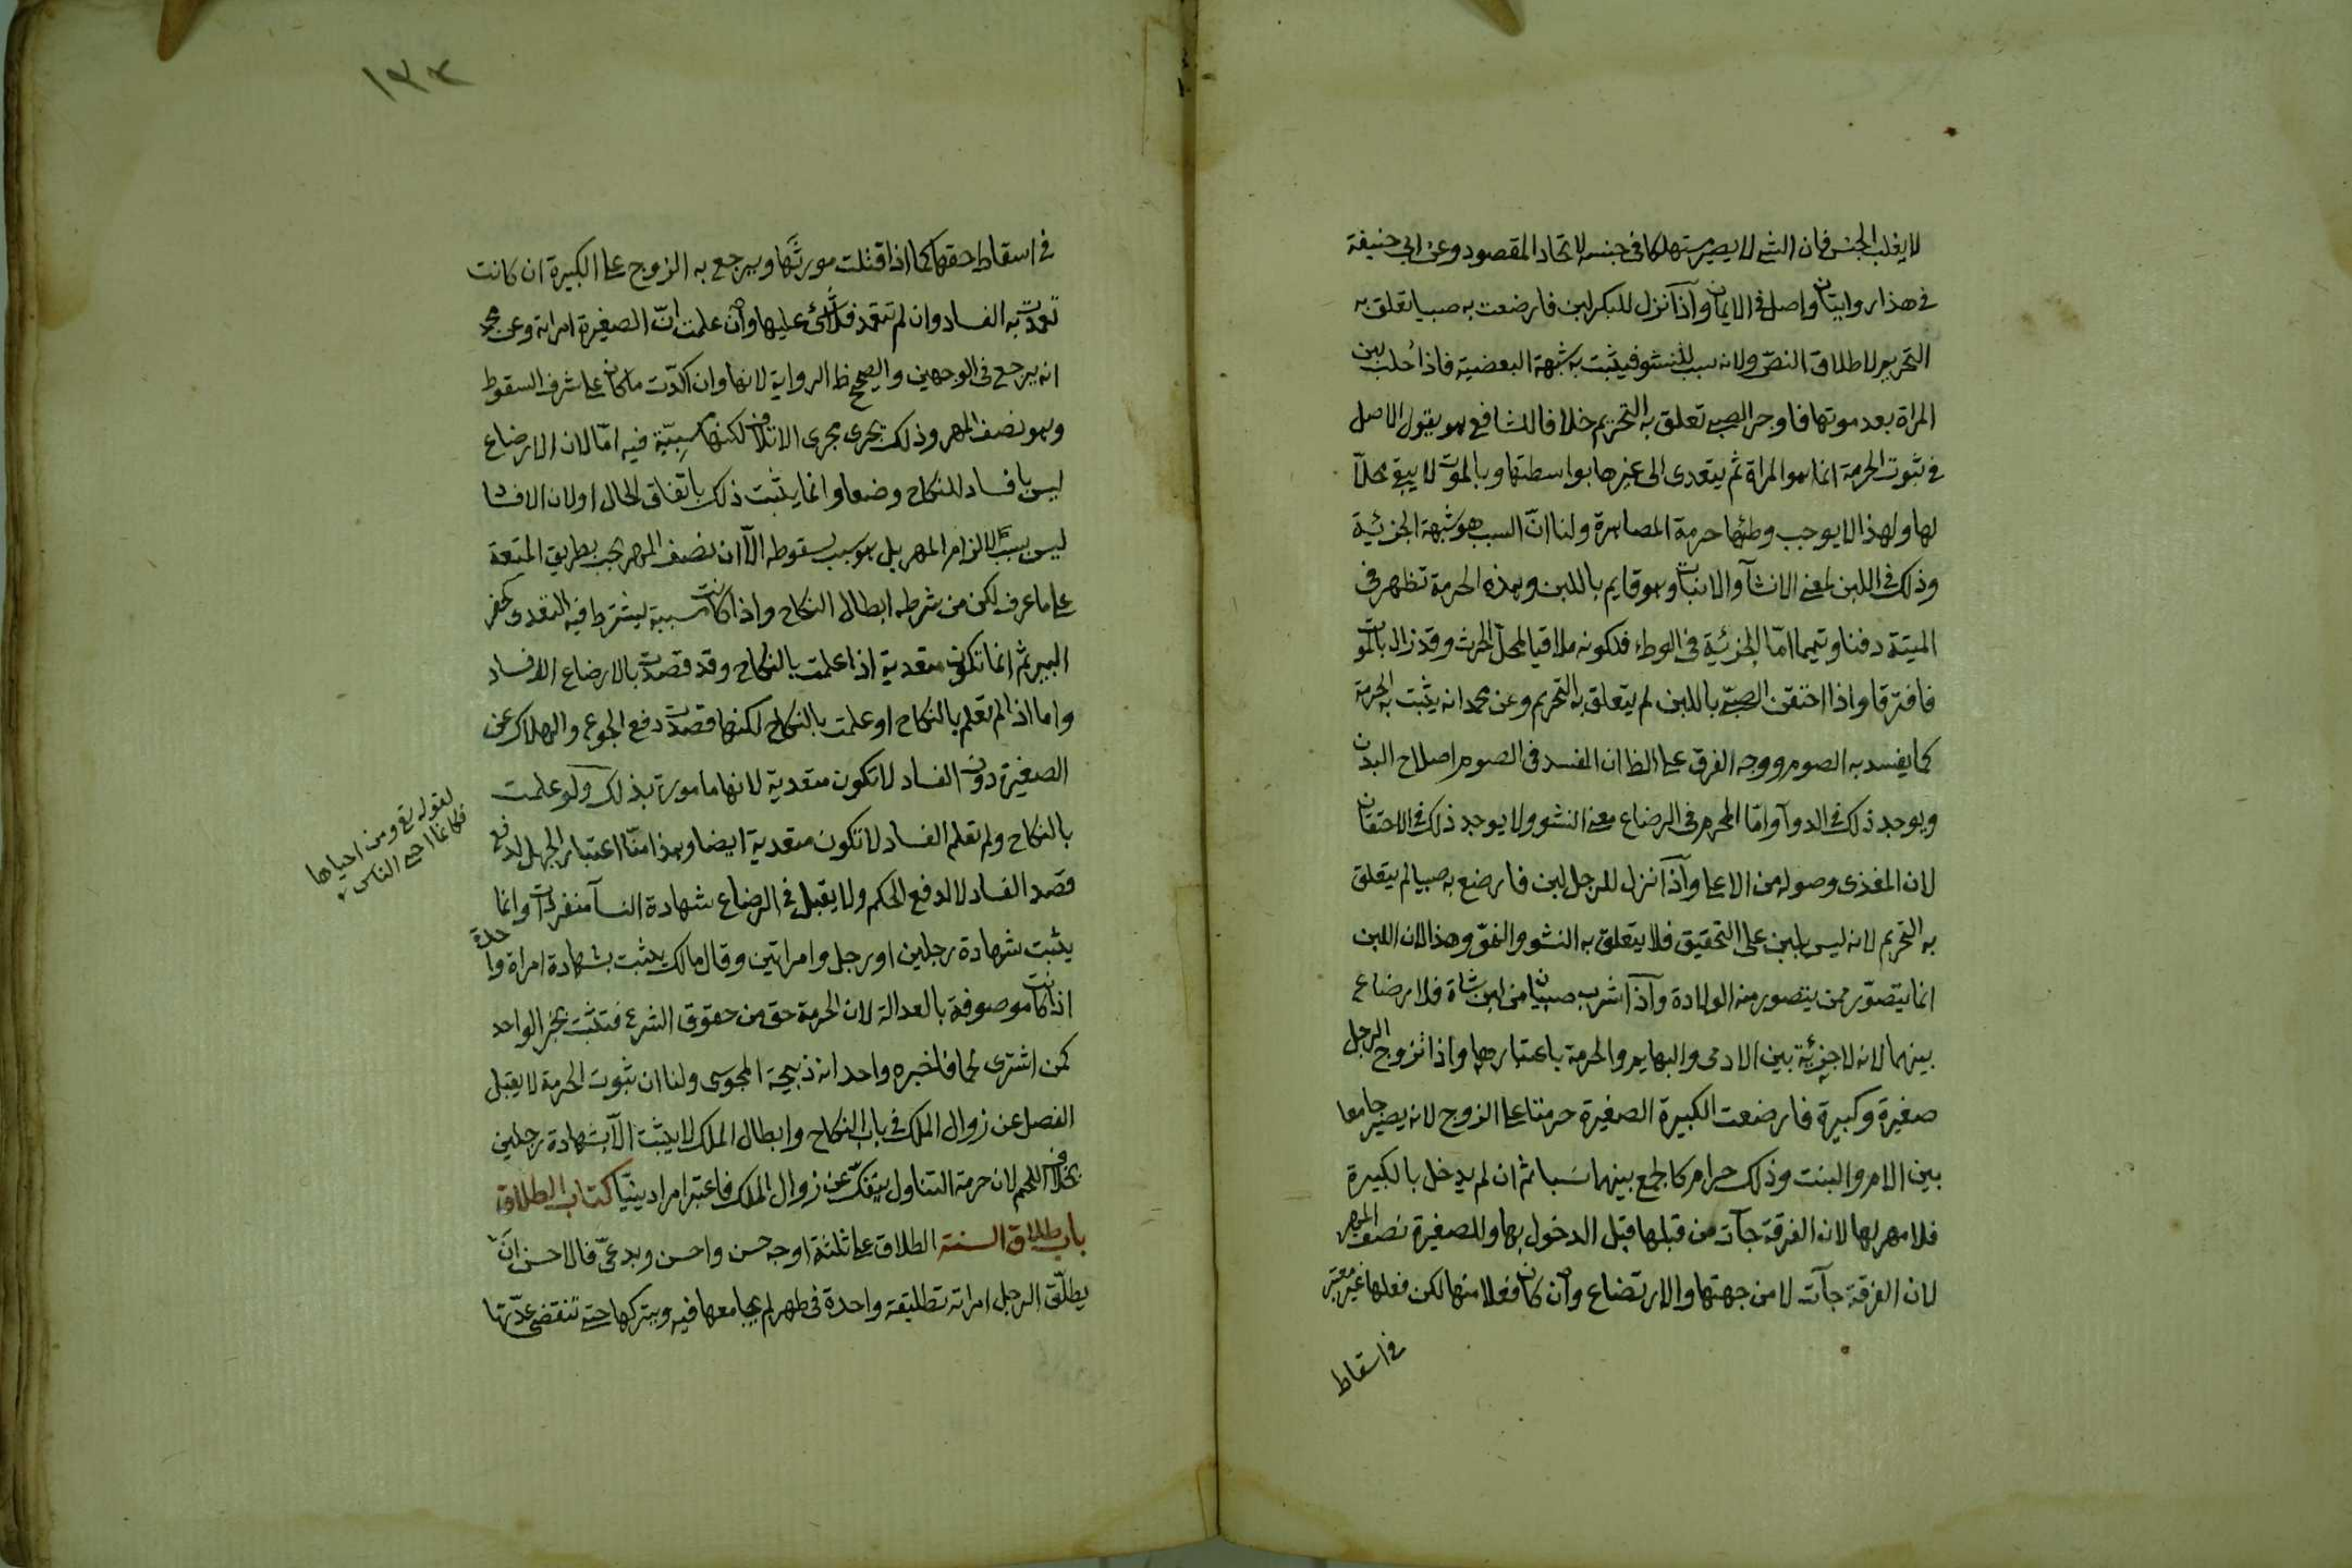 لا يغلب الجنس فان الشئ لا يصير مستهلكا فى جنسه لاتحاد المقصود وعن ابى حنيفة
فى هذا روايتان واصل فى الايمان واذا نزل للبكر لبن فارضعت به صبيا تعلق به
التحريم لاطلاق النصّ ولانه سبب للنشو فيثبت به شبهة البعضية فاذا حلب لبن
المراة بعد موتها فاوجر الصبى تعلق به التحريم خلافا للشافعى هو يقول الاصل
فى ثبوت الحرمة انما هو المراة ثم يتعدى الى غيرها بواسطتها وبالموت لا يبقى محلّا
لها ولهذا لا يوجب وطئها حرمة المصاهرة ولنا انّ السبب هو شبهة الجزئية
وذلك فى اللبن لمعنى الانشآ والانبات وهو قايم باللبن وهذه الحرمة تظهر فى
الميتة دفنا وتيمما امّا الجزئية فى الوطء فلكونه ملاقيا لمحلّ الحرث وقد زال بالموت
فافترقا واذا احتقن الصبىّ باللبن لم يتعلق به التحريم وعن محمد انه يثبت به الحرمة
كما يفسد به الصوم ووجه الفرق على الظا ان المفسد فى الصوم اصلاح البدن
ويوجد ذلك فى الدوآ وامّا المحرم فى الرضاع معنى النشو ولا يوجد ذلك فى الاحتقان
لان المغذى وصوله من الاعلى واذا نزل للرجل لبن فارضع به صبيا لم يتعلق
به التحريم لانه ليس بلبن على التحقيق فلا يتعلق به النشو والنموّ وهذا لان اللبن
انما يتصوّر ممن يتصور منه الولادة واذا شرب صبيان من لبن شاة فلا رضاع
بينهما لانه لا جزئية بين الادمى والبهايم والحرمة باعتبارها واذا تزوج الرجل
صغيرة وكبيرة فارضعت الكبيرة الصغيرة حرمتا على الزوج لانه يصير جامعا
بين الام والبنت وذلك حرام كالجمع بينهما نسبا ثم ان لم يدخل بالكبيرة
فلا مهر لها لان الفرقة جآت من قبلها قبل الدخول بها وللصغيرة نصف المهر
لان الفرقة جآت لا من جهتها والارتضاع وان كان فعلا منها لكن فعلها غير معتبر
فى اسقاط
١٣٣
فى اسقاط حقها كما اذا قتلت مورثها ويرجع به الزوج على الكبيرة ان كانت
تعمدت به الفساد وان لم تتعمد فلا شئ عليها وان علمت انّ الصغيرة امراته وعن محمد
انه يرجع فى الوجهين والصحيح ظ الرواية لانها وان اكدّت ما كان على شرف السقوط
وهو نصف المهر وذلك يجرى مجرى الاتلاف لكنها مسبّبة فيه امّا لان الارضاع
ليس بافساد للنكاح وضعا وانما يثبت ذلك باتفاق الحال او لان الافساد
ليس بسبب لالزام المهر بل هو سبب لسقوطه الّا ان نصف المهر يجب بطريق المتعة
على ما عرف لكن من شرطه ابطال النكاح واذا كانت مسببة يشترط فيه التعدى كحفر
البير ثم انما تكون متعدية اذا علمت بالنكاح وقد قصدت بالارضاع الافساد
واما اذا لم تعلم بالنكاح او علمت بالنكاح لكنها قصدت دفع الجوع والهلاك عن
الصغيرة دون الفساد لا تكون متعدية لانها مامورة بذلك ولو علمت
بالنكاح ولم تعلم الفساد لا تكون متعدية ايضا وهذا منّا اعتبار الجهل لدفع
قصد الفساد لا لدفع الحكم ولا يقبل فى الرضاع شهادة النسآ منفردات وانما
يثبت بشهادة رجلين او رجل وامراتين وقال مالك يثبت بشهادة امراة واحدة
اذا كانت موصوفة بالعدالة لان الحرمة حق من حقوق الشرع فتثبت بخبر الواحد
كمن اشترى لحما فاخبره واحد انه ذبيحة المجوسى ولنا ان ثبوت الحرمة لا يقبل
الفصل عن زوال الملك فى باب النكاح وابطال الملك لا يثبت الّا بشهادة رجلين
بخلاف اللحم لان حرمة التناول ينفكّ عن زوال الملك فاعتبر امرا دينيّا كتاب الطلاق
باب طلاق السنة الطلاق على ثلثة اوجه حسن واحسن وبدعىّ فالاحسن انّ
يطلّق الرجل امراته تطليقة واحدة فى طهر لم يجامعها فيه ويتركها حتى تنقضى عدّتها
لقوله تع ومن احياها
فكانما احيى الناس